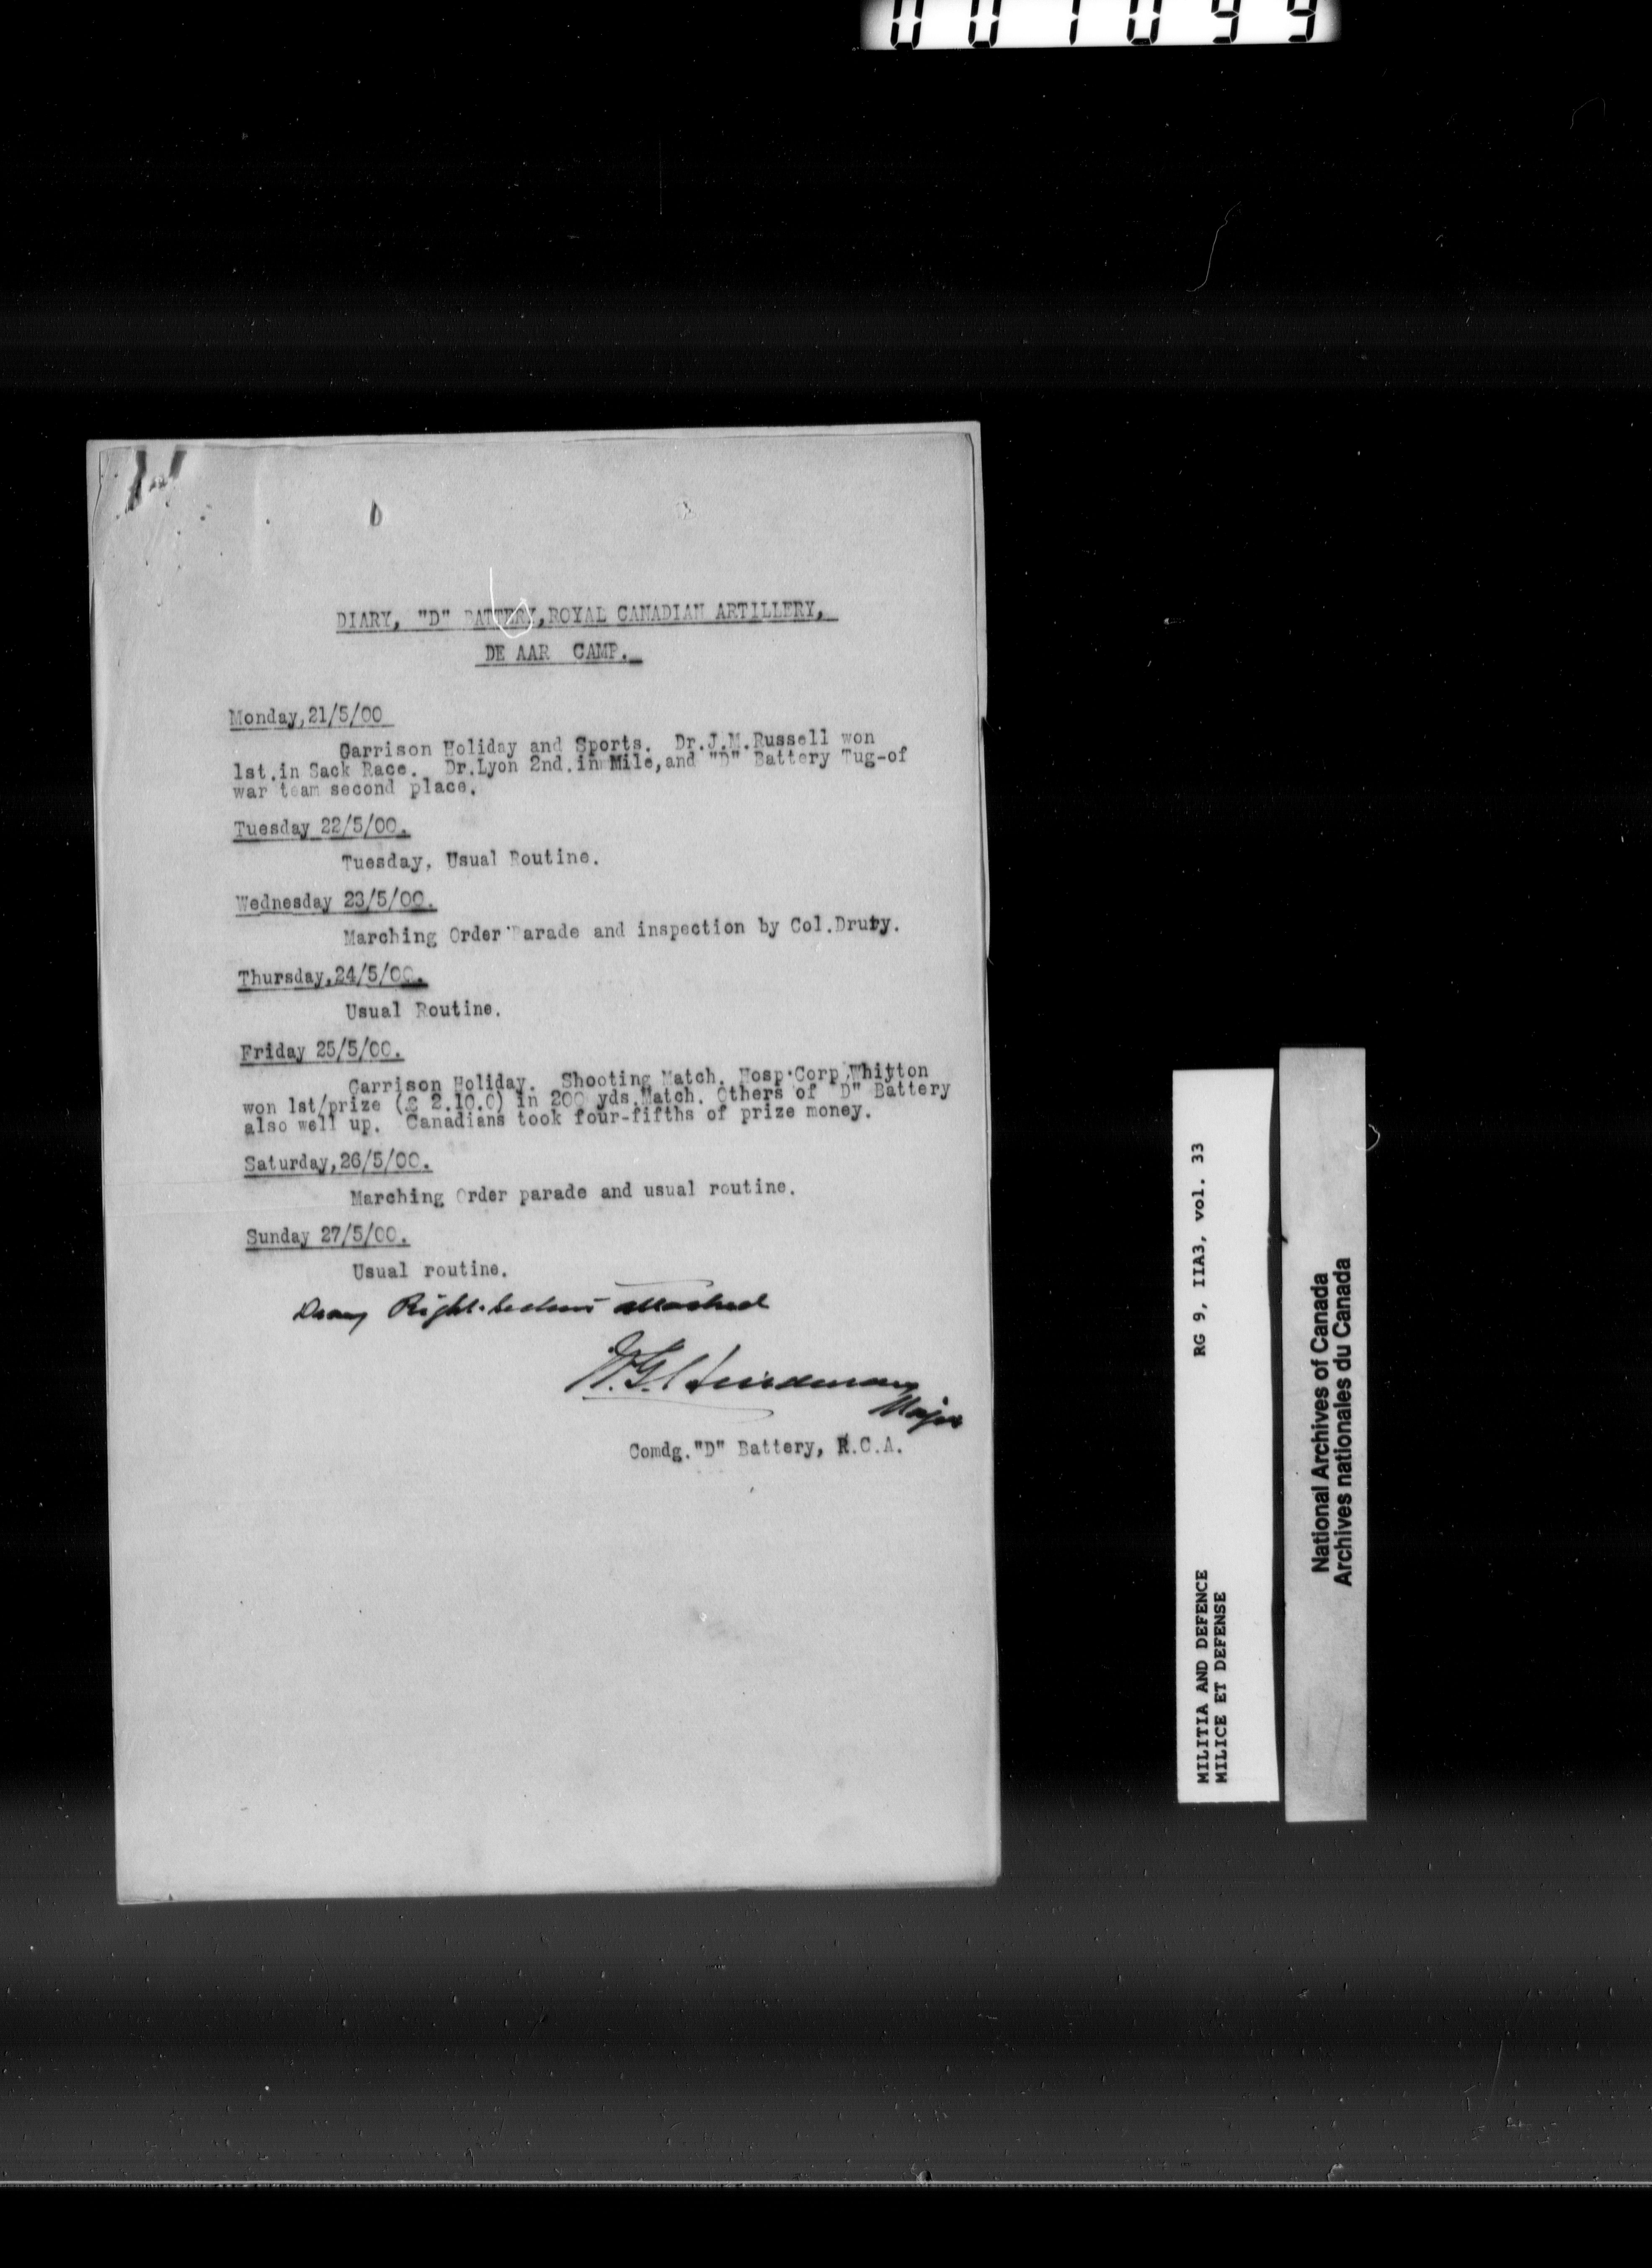 001099
DIARY, "D" BATTERY, ROYAL CANADIAN ARTILLERY,
DE AAR CAMP.
Monday, 21/5/00
Garrison Holiday and Sports. Dr.J.M.Russell won
1st.in Sack Race. Dr.Lyon 2nd.in Mile,and "D" Battery Tug-of
war team second place.
Tuesday 22/5/00.
Tuesday, Usual Routine.
Wednesday 23/5/00.
Marching Order Parade and inspection by Col.Drury.
Thursday,24/5/00.
Usual Routine.
Friday 25/5/00.
Garrison Holiday. Shooting Match. Hosp.Corp.Whitton
won 1st/prize (£ 2.10.0) in 200 yds.Match. Others of "D" Battery
also well up. Canadians took four-fifths of prize money.
Saturday,26/5/00.
Marching Order parade and usual routine.
Sunday 27/5/00.
Usual routine.
Diary Right Section attached
Major
Comdg."D" Battery, R.C.A.
RG 9, IIA3, vol. 33
MILITIA AND DEFENCE
MILICE ET DEFENSE
National Archives of Canada
Archives nationales du Canada